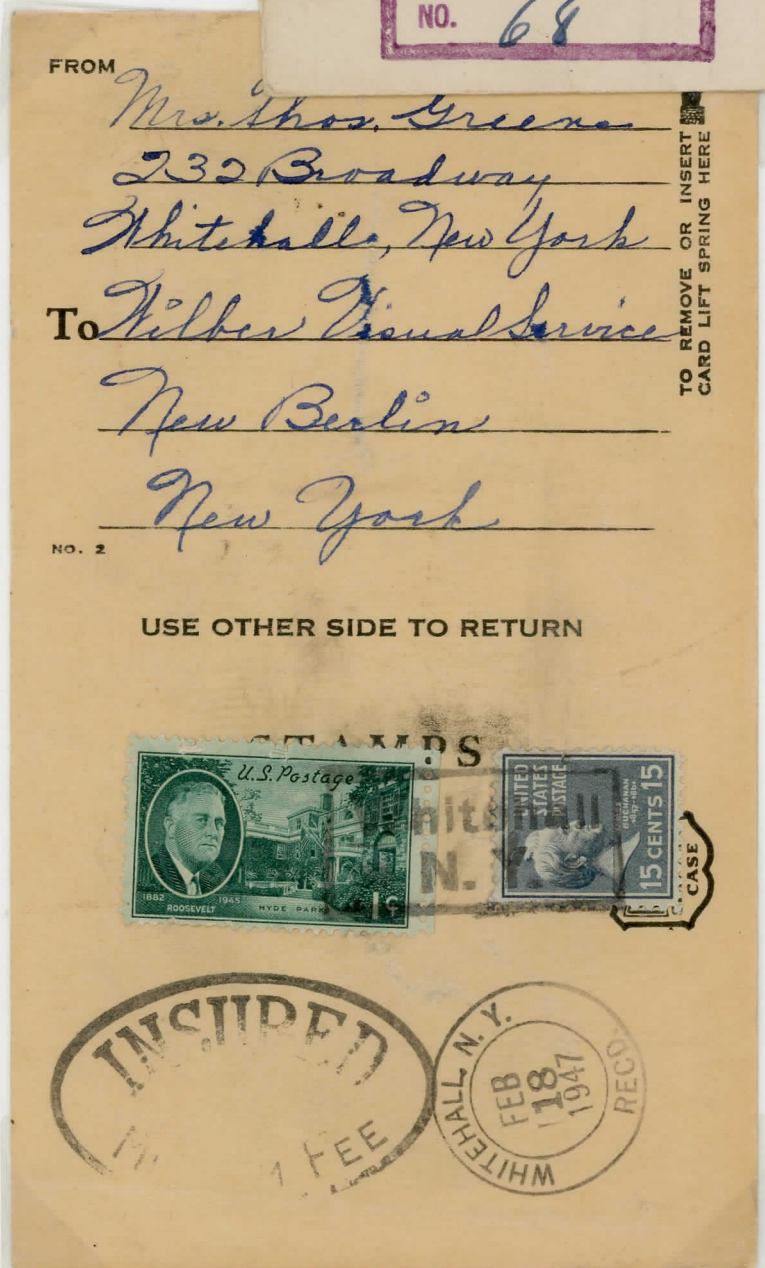 NO. 68
FROM
Mrs. Thos. Greene
232 Broadway
Whitehall, New York
To Wilber Visual Service
New Berlin
New York
NO. 2
TO REMOVE OR INSERT
CARD LIFT SPRING HERE
USE OTHER SIDE TO RETURN
STAMPS
U.S. Postage
1882 1945
ROOSEVELT HYDE PARK
1¢
UNITED
STATES
POSTAGE
BUCHANAN
1857-1861
15 CENTS 15
Whitehall
N. Y.
CASE
INSURED
FEE
WHITEHALL, N. Y.
FEB
18
1947